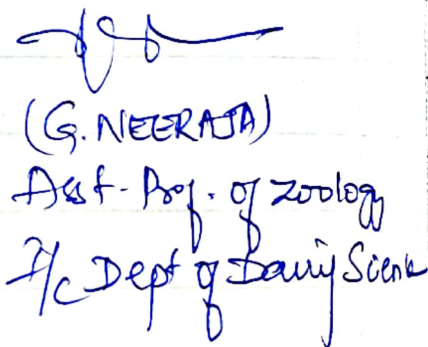 (G. NEERAJA)
Asst. Prof. of Zoology
I/c Dept of Dairy Science